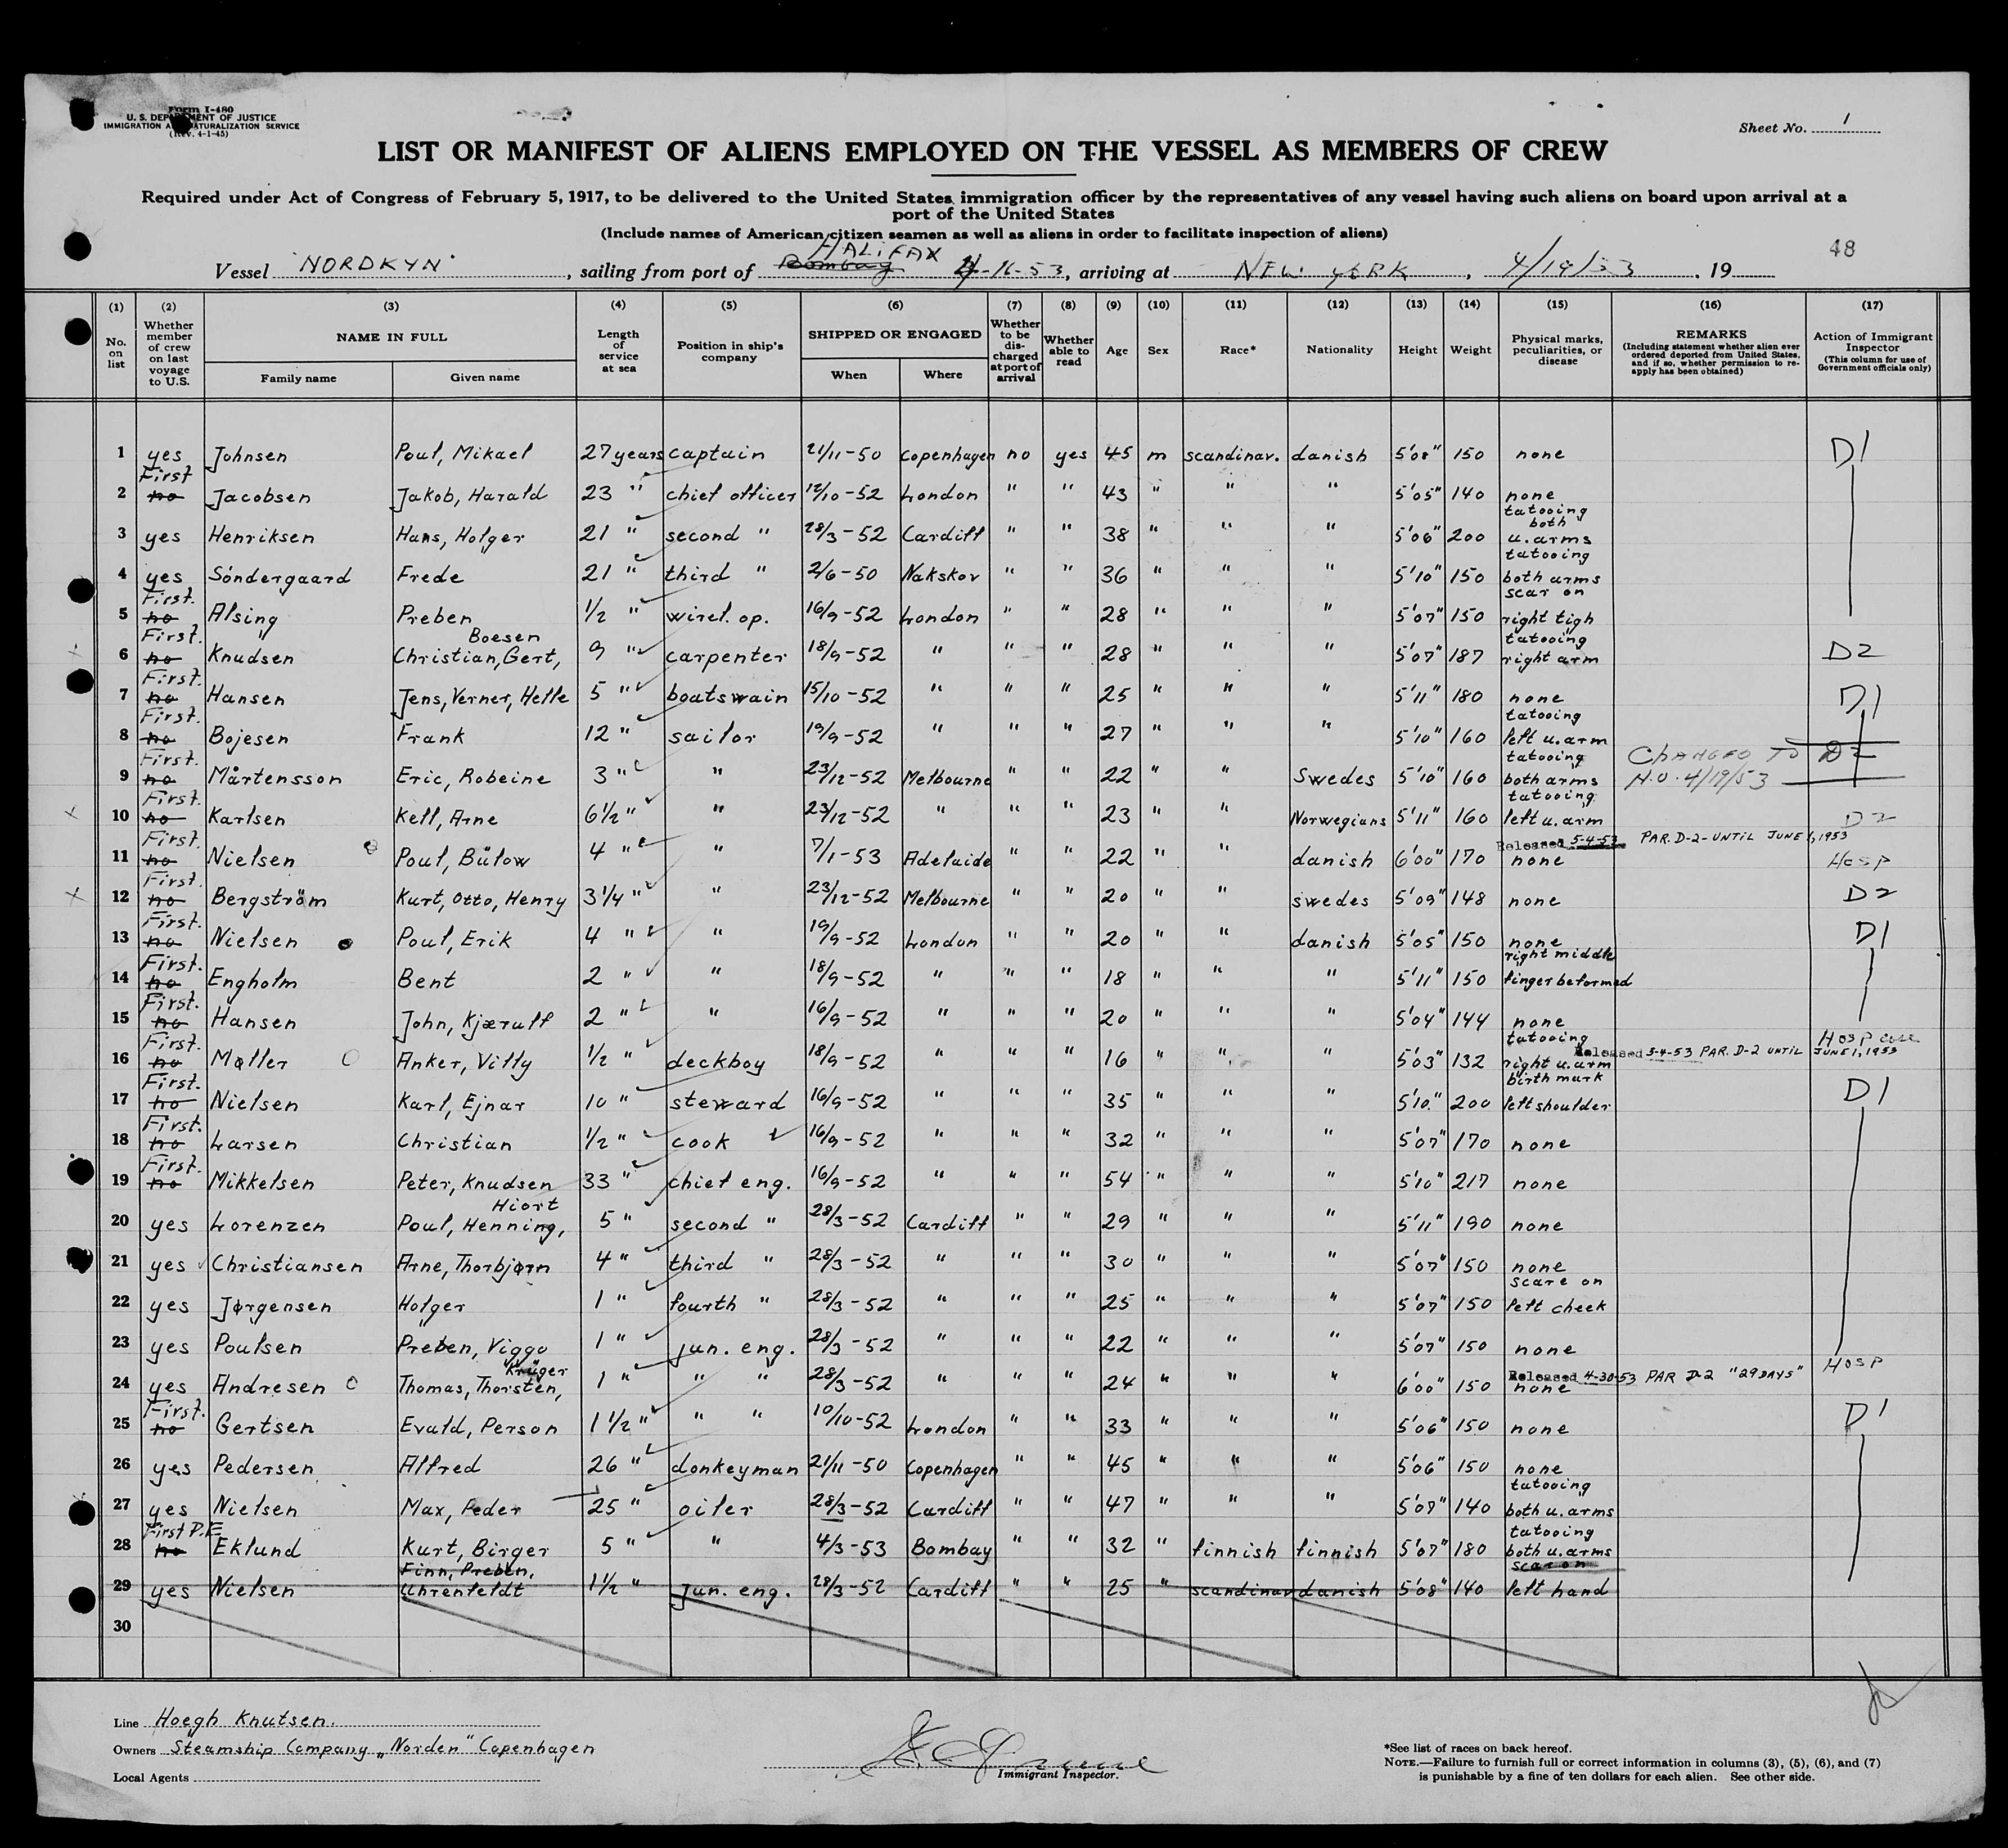 Form I-480
U. S. DEPARTMENT OF JUSTICE
IMMIGRATION AND NATURALIZATION SERVICE
(Rev. 4-1-45)
Sheet No. 1
LIST OR MANIFEST OF ALIENS EMPLOYED ON THE VESSEL AS MEMBERS OF CREW
Required under Act of Congress of February 5, 1917, to be delivered to the United States immigration officer by the representatives of any vessel having such aliens on board upon arrival at a
port of the United States
(Include names of American citizen seamen as well as aliens in order to facilitate inspection of aliens)
48
HALIFAX
Vessel "NORDKYN", sailing from port of Bombay 4-16-53, arriving at NEW YORK, 4/19/53, 19
(1) No. on list (2) Whether member of crew on last voyage to U.S. (3) NAME IN FULL Family name Given name (4) Length of service at sea (5) Position in ship's company (6) SHIPPED OR ENGAGED When Where (7) Whether to be discharged at port of arrival (8) Whether able to read (9) Age (10) Sex (11) Race* (12) Nationality (13) Height (14) Weight (15) Physical marks, peculiarities, or disease (16) REMARKS (Including statement whether alien ever ordered deported from United States, and if so, whether permission to re-apply has been obtained) (17) Action of Immigrant Inspector (This column for use of Government officials only)
1 yes Johnsen Poul, Mikael 27 years captain 21/11-50 Copenhagen no yes 45 m scandinav. danish 5'08" 150 none D1
2 First no Jacobsen Jakob, Harald 23 " chief officer 12/10-52 London " " 43 " " " 5'05" 140 none
3 yes Henriksen Hans, Holger 21 " second " 28/3-52 Cardiff " " 38 " " " 5'06" 200 tatooing both u. arms
4 yes Söndergaard Frede 21 " third " 2/6-50 Nakskov " " 36 " " " 5'10" 150 tatooing both arms
5 First. no Alsing Preben 1/2 " wirel. op. 16/9-52 London " " 28 " " " 5'07" 150 scar on right tigh
6 First. no Knudsen Christian, Gert, Boesen 9 " carpenter 18/9-52 " " " 28 " " " 5'07" 187 tatooing right arm D2
7 First. no Hansen Jens, Verner, Helle 5 " boatswain 15/10-52 " " " 25 " " " 5'11" 180 none D1
8 First. no Bojesen Frank 12 " sailor 19/9-52 " " " 27 " " " 5'10" 160 tatooing left u. arm
9 First. no Mårtensson Eric, Robeine 3 " " 23/12-52 Melbourne " " 22 " " Swedes 5'10" 160 tatooing both arms CHANGED TO D2 N.O. 4/19/53
10 First. no Karlsen Kell, Arne 6 1/2 " " 23/12-52 " " " 23 " " Norwegians 5'11" 160 tatooing left u. arm D2
11 First. no Nielsen Poul, Bülow 4 " " 7/1-53 Adelaide " " 22 " " danish 6'00" 170 none Released 5-4-53 PAR. D-2-UNTIL JUNE 1, 1953 HOSP
12 First. no Bergström Kurt, Otto, Henry 3 1/4 " " 23/12-52 Melbourne " " 20 " " swedes 5'09" 148 none D2
13 First. no Nielsen Poul, Erik 4 " " 19/9-52 London " " 20 " " danish 5'05" 150 none D1
14 First. no Engholm Bent 2 " " 18/9-52 " " " 18 " " " 5'11" 150 right middle finger beformed
15 First. no Hansen John, Kjærulf 2 " " 16/9-52 " " " 20 " " " 5'04" 144 none
16 First. no Møller Anker, Villy 1/2 " deckboy 18/9-52 " " " 16 " " " 5'03" 132 tatooing right u. arm Released 5-4-53 PAR. D-2 UNTIL JUNE 1, 1953 HOSP
17 First. no Nielsen Karl, Ejnar 10 " steward 16/9-52 " " " 35 " " " 5'10" 200 birth mark left shoulder D1
18 First. no Larsen Christian 1/2 " cook 16/9-52 " " " 32 " " " 5'07" 170 none
19 First. no Mikkelsen Peter, Knudsen 33 " chief eng. 16/9-52 " " " 54 " " " 5'10" 217 none
20 yes Lorenzen Poul, Henning, Hiort 5 " second " 28/3-52 Cardiff " " 29 " " " 5'11" 190 none
21 yes Christiansen Arne, Thorbjørn 4 " third " 28/3-52 " " " 30 " " " 5'07" 150 none
22 yes Jørgensen Holger 1 " fourth " 28/3-52 " " " 25 " " " 5'07" 150 scare on left cheek
23 yes Poulsen Preben, Viggo 1 " jun. eng. 28/3-52 " " " 22 " " " 5'07" 150 none
24 yes Andresen Thomas, Thorsten, Krüger 1 " " " 28/3-52 " " " 24 " " " 6'00" 150 none Released 4-30-53 PAR D-2 "29 DAYS" HOSP
25 First. no Gertsen Evald, Person 1 1/2 " " " 10/10-52 London " " 33 " " " 5'06" 150 none D1
26 yes Pedersen Alfred 26 " donkeyman 21/11-50 Copenhagen " " 45 " " " 5'06" 150 none
27 yes Nielsen Max, Peder 25 " oiler 28/3-52 Cardiff " " 47 " " " 5'07" 140 tatooing both u. arms
28 First P.E. no Eklund Kurt, Birger 5 " " 4/3-53 Bombay " " 32 " finnish finnish 5'07" 180 tatooing both u. arms
29 yes Nielsen Finn, Preben, Uhrenfeldt 1 1/2 " jun. eng. 28/3-52 Cardiff " " 25 " scandinav danish 5'08" 140 scar on left hand
30
Line Hoegh Knutsen.
Owners Steamship Company „Norden" Copenhagen
Local Agents
Immigrant Inspector.
*See list of races on back hereof.
NOTE.—Failure to furnish full or correct information in columns (3), (5), (6), and (7)
is punishable by a fine of ten dollars for each alien. See other side.